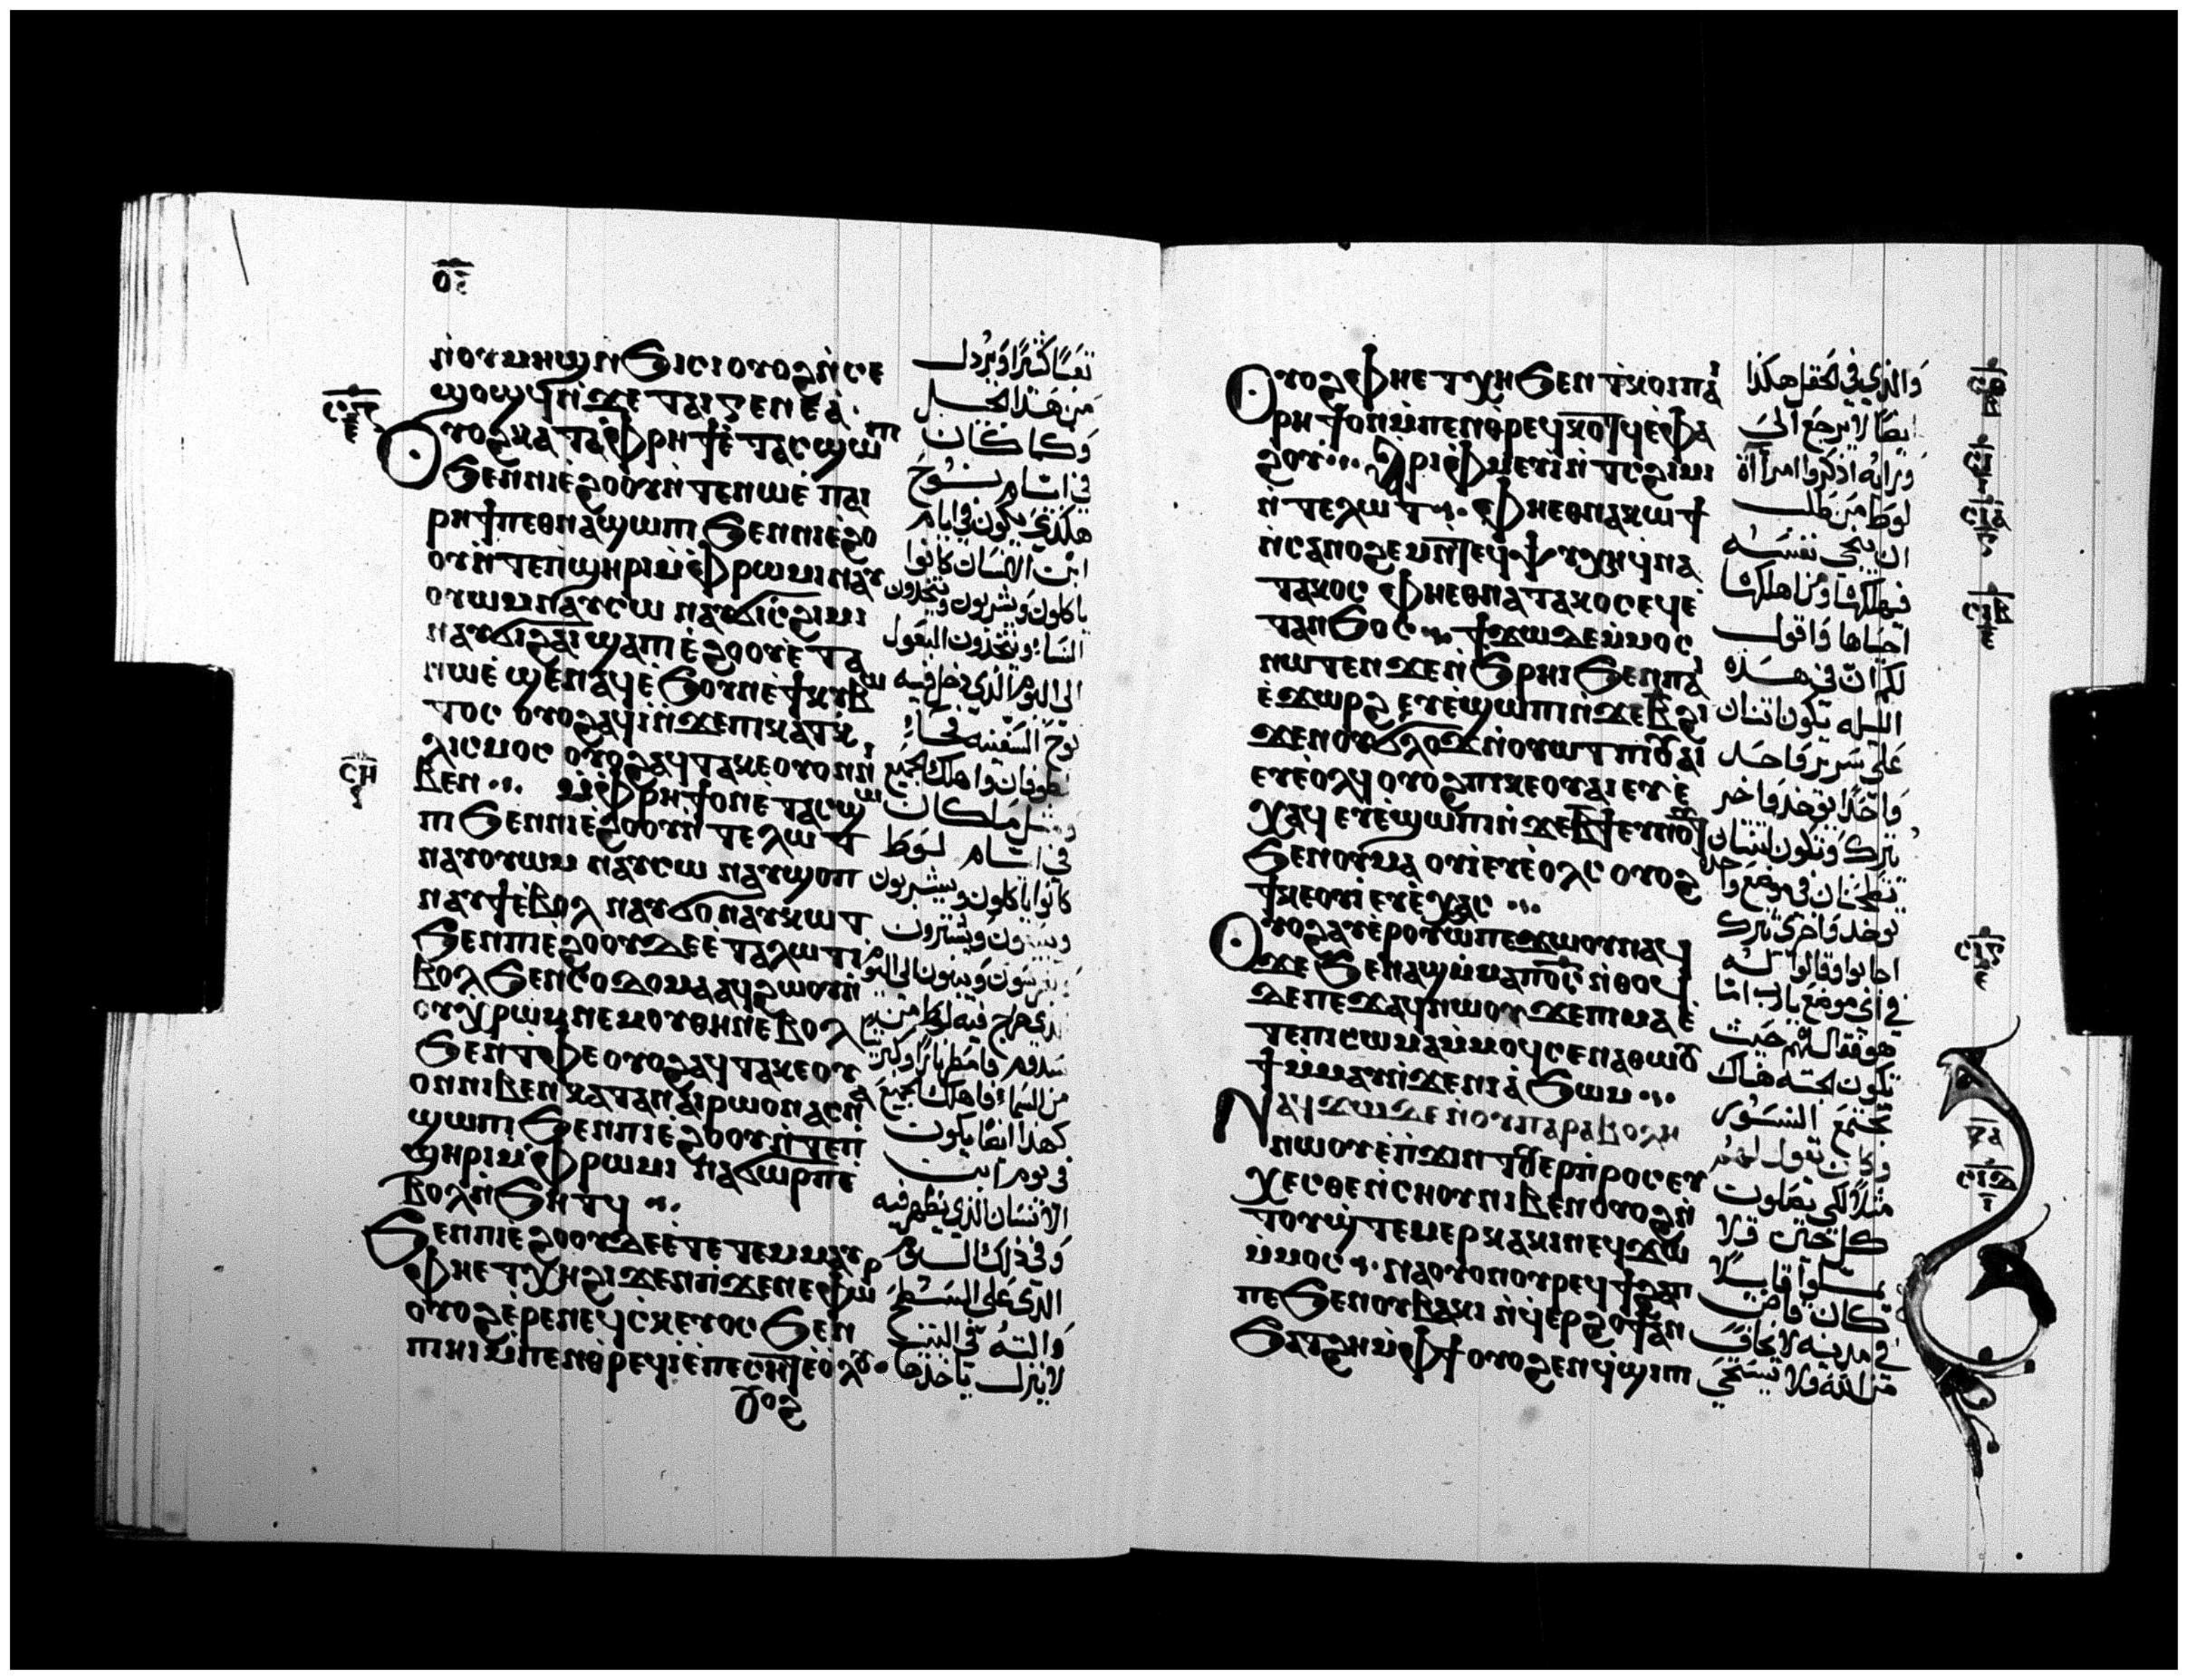 ⲟⲋ
ⲛⲟⲩⲙⲏϣ ⲛϧⲓⲥⲓ ⲟⲩⲟϩ ⲛⲥⲉ
ϣⲟϣϥ ⲛϫⲉ ⲧⲁⲓⲅⲉⲛⲉⲁ
Ⲟⲩⲟϩ ⲕⲁⲧⲁ ⲫⲣⲏϯ ⲉⲧⲁⲥϣⲱⲡ
ϧⲉⲛ ⲛⲓⲉϩⲟⲟⲩ ⲛⲧⲉ ⲛⲱⲉ ⲡⲁⲓ
ⲣⲏϯ ⲡⲉⲑⲛⲁϣⲱⲡⲓ ϧⲉⲛ ⲛⲓⲉϩⲟ
ⲟⲩ ⲛⲧⲉ ⲡϣⲏⲣⲓ ⲙⲫⲣⲱⲙⲓ ⲛⲁⲩ
ⲟⲩⲱⲙ ⲛⲁⲩⲥⲱ ⲛⲁⲩϭⲓⲥϩⲓⲙⲓ
ⲛⲁⲩϭⲓϩⲁⲓ ϣⲁ ⲡⲓⲉϩⲟⲟⲩ ⲉⲧⲁ
ⲛⲱⲉ ϣⲉⲛⲁϥ ⲉϧⲟⲩⲛ ⲉϯⲕⲩⲃⲱ
ⲧⲟⲥ ⲟⲩⲟϩ ⲁϥⲓ ⲛϫⲉ ⲡⲓⲕⲁⲧⲁⲕ
ⲗⲓⲥⲙⲟⲥ ⲟⲩⲟϩ ⲁϥⲧⲁⲕⲉ ⲟⲩⲟⲛ ⲛⲓ
ⲃⲉⲛ ⲙⲫⲣⲏϯ ⲟⲛ ⲉⲧⲁⲥϣⲱ
ⲡⲓ ϧⲉⲛ ⲛⲓⲉϩⲟⲟⲩ ⲛⲧⲉ ⲗⲱⲧ
ⲛⲁⲩⲟⲩⲱⲙ ⲛⲁⲩⲥⲱ ⲛⲁⲩϣⲟⲡ
ⲛⲁⲩϯ ⲉⲃⲟⲗ ⲛⲁⲩϭⲟ ⲛⲁⲩⲕⲱⲧ
ϧⲉⲛ ⲡⲓⲉϩⲟⲟⲩ ⲇⲉ ⲉⲧⲁ ⲗⲱⲧ ⲓ
ⲃⲟⲗ ϧⲉⲛ ⲥⲟⲇⲟⲙⲁ ⲁϥϩⲱⲟⲩ ⲛ
ⲟⲩⲭⲣⲱⲙ ⲛⲉⲙ ⲟⲩⲑⲏⲛ ⲉⲃⲟⲗ
ϧⲉⲛ ⲧⲫⲉ ⲟⲩⲟϩ ⲁϥⲧⲁⲕⲉ ⲟⲩ
ⲟⲛ ⲛⲓⲃⲉⲛ ⲕⲁⲧⲁ ⲛⲁⲓ ⲣⲱ ⲟⲛ ⲁⲥⲛⲁ
ϣⲱⲡⲓ ϧⲉⲛ ⲡⲓⲉϩⲟⲟⲩ ⲛⲧⲉ ⲡ
ϣⲏⲣⲓ ⲙⲫⲣⲱⲙⲓ ⲛⲁϭⲱⲣⲡ ⲉ
ⲃⲟⲗ ⲛϧⲏⲧϥ
ϧⲉⲛ ⲡⲓⲉϩⲟⲟⲩ ⲇⲉ ⲉⲧⲉⲙⲙⲁⲩ
ⲫⲏ ⲉⲧⲭⲏ ϩⲓϫⲉⲛ ⲡⲓϫⲉⲛⲉⲫⲱⲣ
ⲟⲩⲟϩ ⲉⲣⲉ ⲛⲉϥⲥⲕⲉⲩⲟⲥ ϧⲉⲛ
ⲡⲓⲏⲓ ⲙⲡⲉⲛⲑⲣⲉϥⲓ ⲉⲡⲉⲥⲏⲧ ⲉⲟⲗⲟⲩ
ⲟⲩⲟϩ
ⲥⲍ
ⲥⲏ
تعبًا كثيرًا ويرذل
من هذا الجيل
وكما كان
في ايام نوح
هكذي يكون في ايام
ابن الانسان كانوا
ياكلون ويشربون ويتخذون
النساء ويتخذون البعول
الى اليوم الذي دخل فيه
نوح السفينه فجاء
الطوفان واهلك الجميع
ومثل ما كان
في ايام لوط
كانوا ياكلون ويشربون
ويبيعون ويشترون
ويغرسون ويبنون الى اليوم
الذي خرج فيه لوط من
سدوم فامطر نارًا وكبريتًا
من السماء فاهلك الجميع
كهذا ايضًا يكون
في يوم ابن
الانسان الذي يظهر فيه
وفي ذلك اليوم
الذي على السطح
والته في البيت
لا ينزل ياخذها
Ⲟⲩⲟϩ ⲫⲏ ⲉⲧⲭⲏ ϧⲉⲛ ⲧⲕⲟⲓ ⲡⲁⲓ
ⲣⲏϯ ⲟⲛ ⲙⲡⲉⲛⲑⲣⲉϥⲕⲟⲧϥ ⲉⲫⲁ
ϩⲟⲩ Ⲁⲣⲓⲫⲙⲉⲩⲓ ⲛⲧⲥϩⲓⲙⲓ
ⲛⲧⲉ ⲗⲱⲧ ⲫⲏ ⲉⲑⲛⲁⲕⲱϯ
ⲛⲥⲁ ⲛⲟϩⲉⲙ ⲛⲧⲉϥⲯⲩⲭⲏ ϥⲛⲁ
ⲧⲁⲕⲟⲥ ⲫⲏ ⲉⲑⲛⲁⲧⲁⲕⲟⲥ ⲉϥⲉ
ⲧⲁⲛϧⲟⲥ ϯϫⲱ ⲇⲉ ⲙⲙⲟⲥ
ⲛⲱⲧⲉⲛ ϫⲉ ⲛϧⲣⲏⲓ ϧⲉⲛ ⲡⲁⲓ
ⲉϫⲱⲣϩ ⲉⲩⲉϣⲱⲡⲓ ⲛϫⲉ ⲃ ϩⲓ
ϫⲉⲛ ⲟⲩϭⲗⲟϫ ⲛⲟⲩⲱⲧ ⲡⲓⲟⲩⲁⲓ
ⲉⲩⲉⲟⲗϥ ⲟⲩⲟϩ ⲡⲓⲕⲉⲟⲩⲁⲓ ⲉⲩⲉ
ⲭⲁϥ ⲉⲩⲉϣⲱⲡⲓ ⲛϫⲉ ⲃϯ ⲉⲩⲛⲟⲩⲧ
ϧⲉⲛ ⲟⲩⲙⲁ ⲟⲩⲓ ⲉⲩⲉⲟⲗⲥ ⲟⲩⲟϩ
ϯⲕⲉⲟⲩⲓ ⲉⲩⲉⲭⲁⲥ
Ⲟⲩⲟϩ ⲁⲩⲉⲣⲟⲩⲱ ⲡⲉϫⲱⲟⲩ ⲛⲁϥ
ϫⲉ ϧⲉⲛ ⲁϣ ⲙⲙⲁ ⲡⲟⲥ ⲛⲑⲟϥ
ⲇⲉ ⲡⲉϫⲁϥ ⲛⲱⲟⲩ ϫⲉ ⲡⲓⲙⲁ ⲉ
ⲧⲉ ⲡⲓⲥⲱⲙⲁ ⲙⲙⲟϥ ⲥⲉⲛⲁⲑⲱⲟⲩ
ϯ ⲙⲙⲁⲩ ⲛϫⲉ ⲛⲓⲁϧⲱⲙ
Ⲛⲁϥϫⲱ ⲇⲉ ⲛⲟⲩⲡⲁⲣⲁⲃⲟⲗⲏ
ⲛⲱⲟⲩ ⲉⲡϫⲓⲛⲧⲟⲩⲉⲣⲡⲣⲟⲥⲉⲩ
ⲭⲉⲥⲑⲉ ⲛⲥⲏⲟⲩ ⲛⲓⲃⲉⲛ ⲟⲩⲟϩ ⲛ
ⲧⲟⲩϣⲧⲉⲙⲉⲣⲕⲁⲕⲓⲛ ⲉϥϫⲱ
ⲙⲙⲟⲥ ⲛⲁⲟⲩⲟⲛ ⲟⲩⲣⲉϥϯϩⲁⲡ
ⲡⲉ ϧⲉⲛ ⲟⲩⲃⲁⲕⲓ ⲛϥⲉⲣϩⲟϯ ⲁⲛ
ϧⲁⲧϩⲏ ⲙⲫϯ ⲟⲩⲟϩ ⲉⲛϥϣⲓⲡⲓ
والذي في الحقل هكذا
ايضًا لا يرجع الى
ورايه اذكروا امراة
لوط من طلب
ان ينجي نفسه
فيهلكها ومن اهلكها
احياها واقول
لكم ان في هذه
الليله يكون اثنان
على سرير واحد
واحدًا يوخذ واخر
يترك وتكون اثنتان
تطحنان في موضع واحد
توخذ واخرى تترك
اجابوا وقالوا له
في اي موضع يا رب اما
هو فقال لهم حيث
تكون الجثه هناك
تجتمع النسور
وكان يقول لهم
مثلًا لكي يصلوت
كل حين ولا
يملوا قايلًا
كان قاضي
في مدينه لا يخاف
من الله ولا يستحي
ⲥⲑ
ⲥⲓ
ⲥⲓⲁ
ⲥⲓⲃ
ⲥⲓⲅ
ⲥⲓⲇ